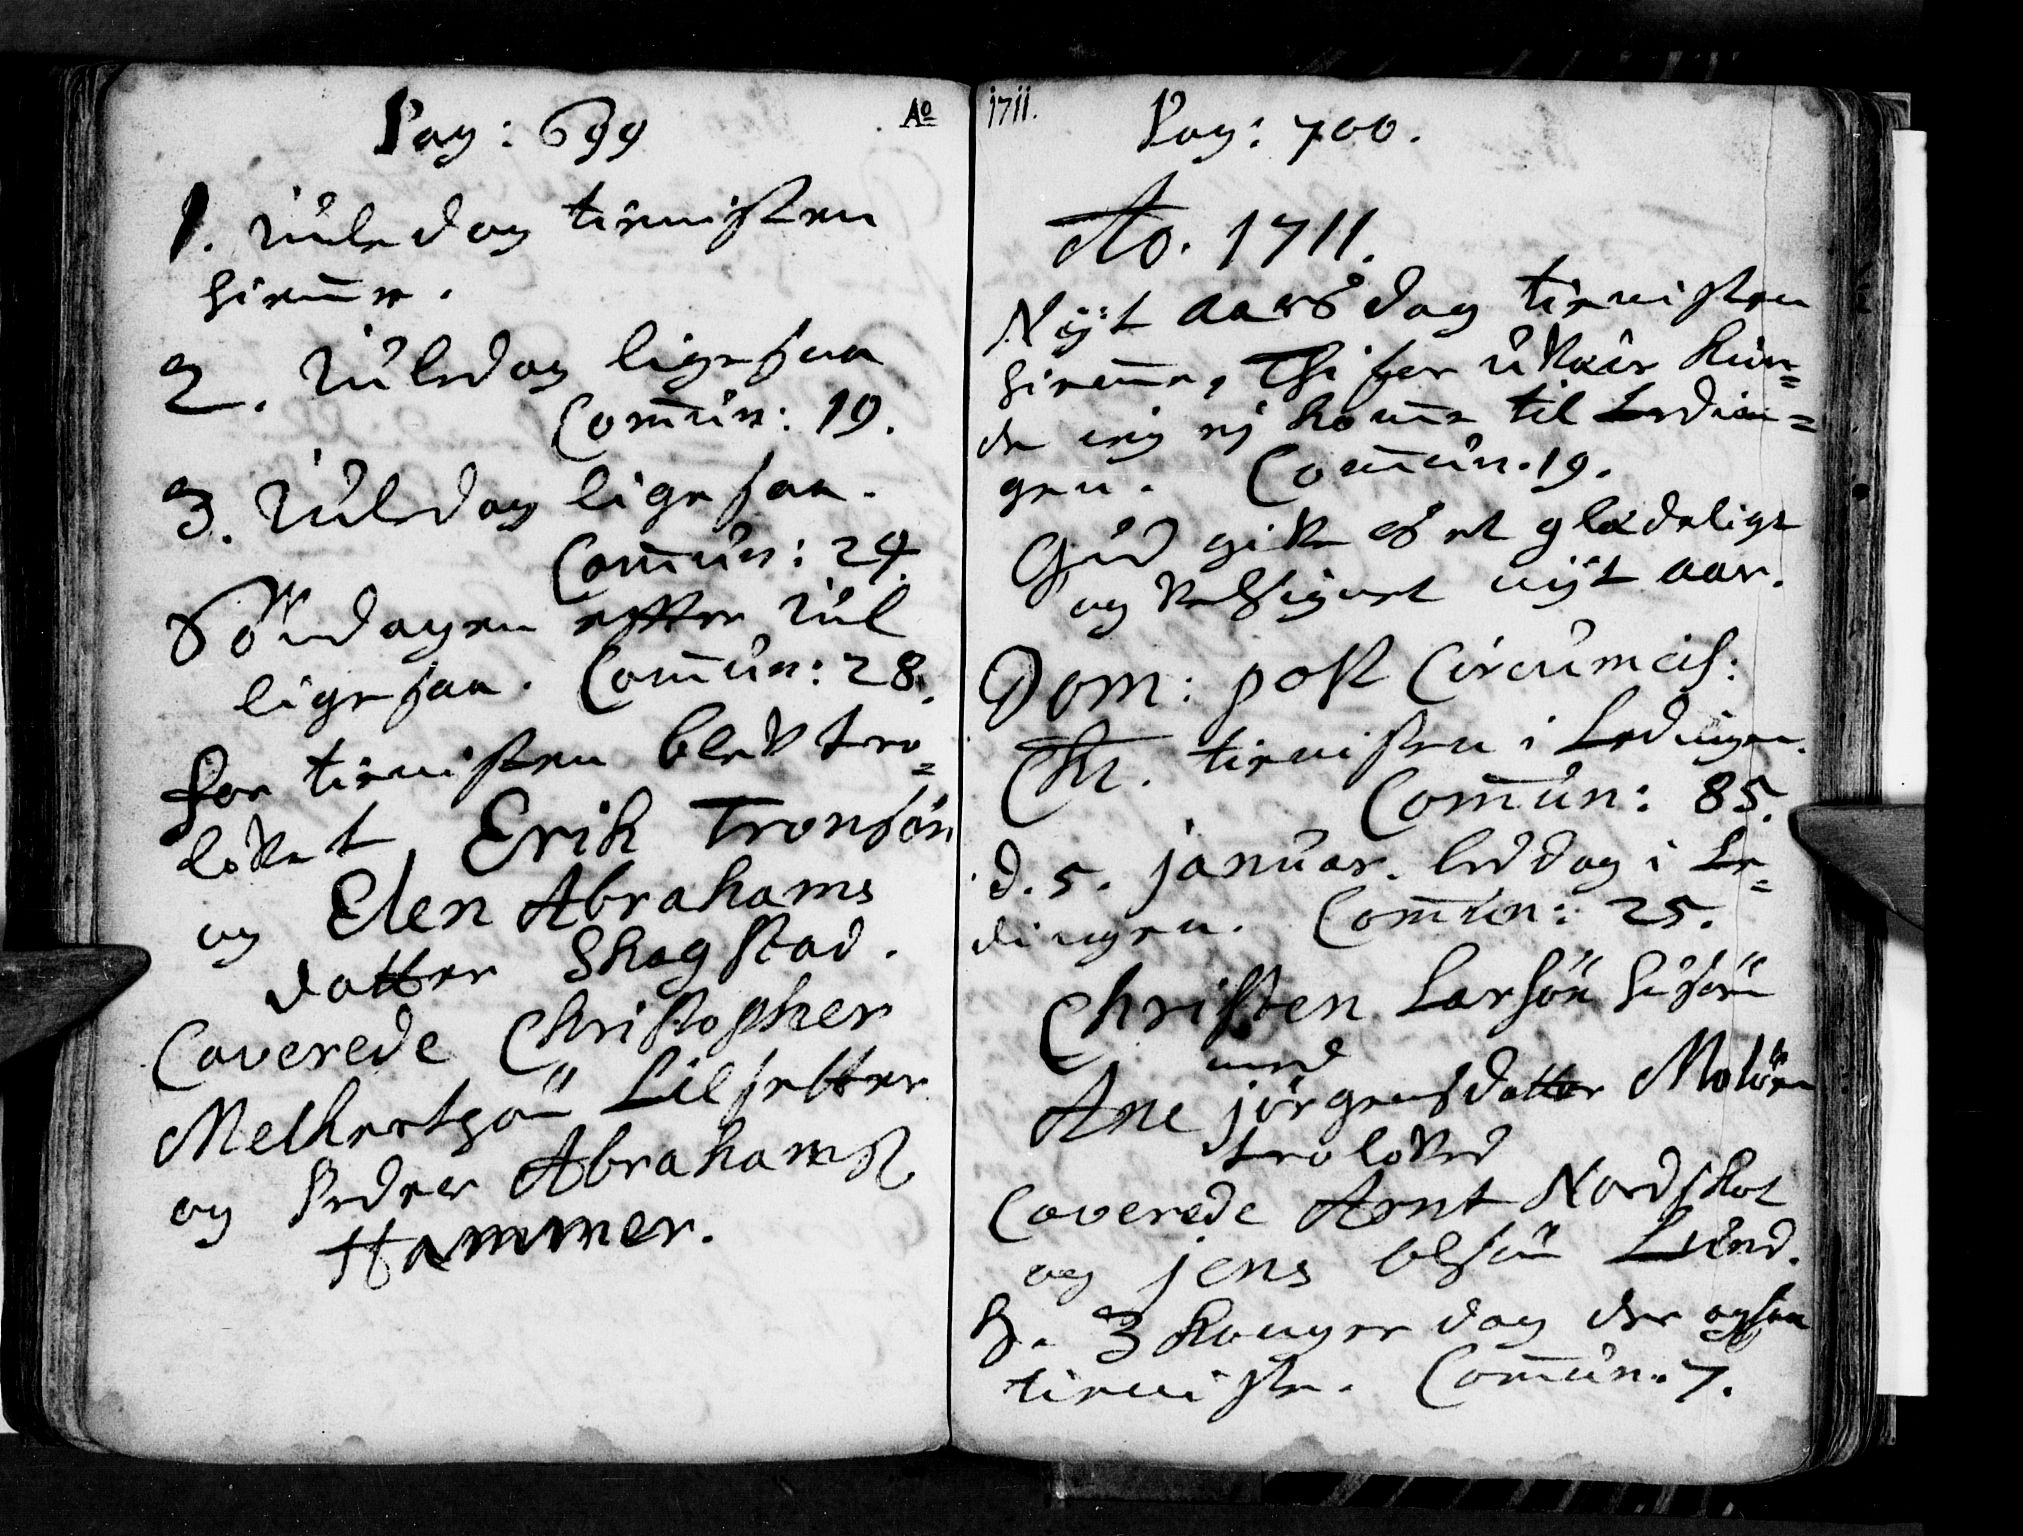 Pag: 699
1. Juledag tienisten
hiemme.
2. Juledag ligesaa
Com̄un: 19.
3. Juledag ligesaa.
Com̄un: 24.
Söndagen effter Jul
ligesaa. Com̄un: 28.
for tienisten blef tro=
lovet Erik Tronsön
og Elen Abrahams
datter Skagstad.
Caverede Christopher
Melkertsön Lilsetter
og Peder Abrahams.
Hammer.
Ao 1711.
Pag: 700.
Ao. 1711.
Nÿt aarsdag tienisten
hiem̄e, Thi for uveir kun=
de ieg ej kom̄e til Lødin=
gen. Com̄un. 19.
Gud give os et glædeligt
og velsignet nÿt aar.
Dom: post Circumcis:
Chr. tienisten i Lødingen.
Com̄un: 85.
d. 5. januar. bededag i Lø=
dingen. Com̄un: 25.
Christen Larsön
med
Ane jörgensdatter
troloved
Caverede Arnt Nordskot
og jens olsön Lund.
H. 3 Konger dag der ogsaa
tieniste. Com̄un. 7.